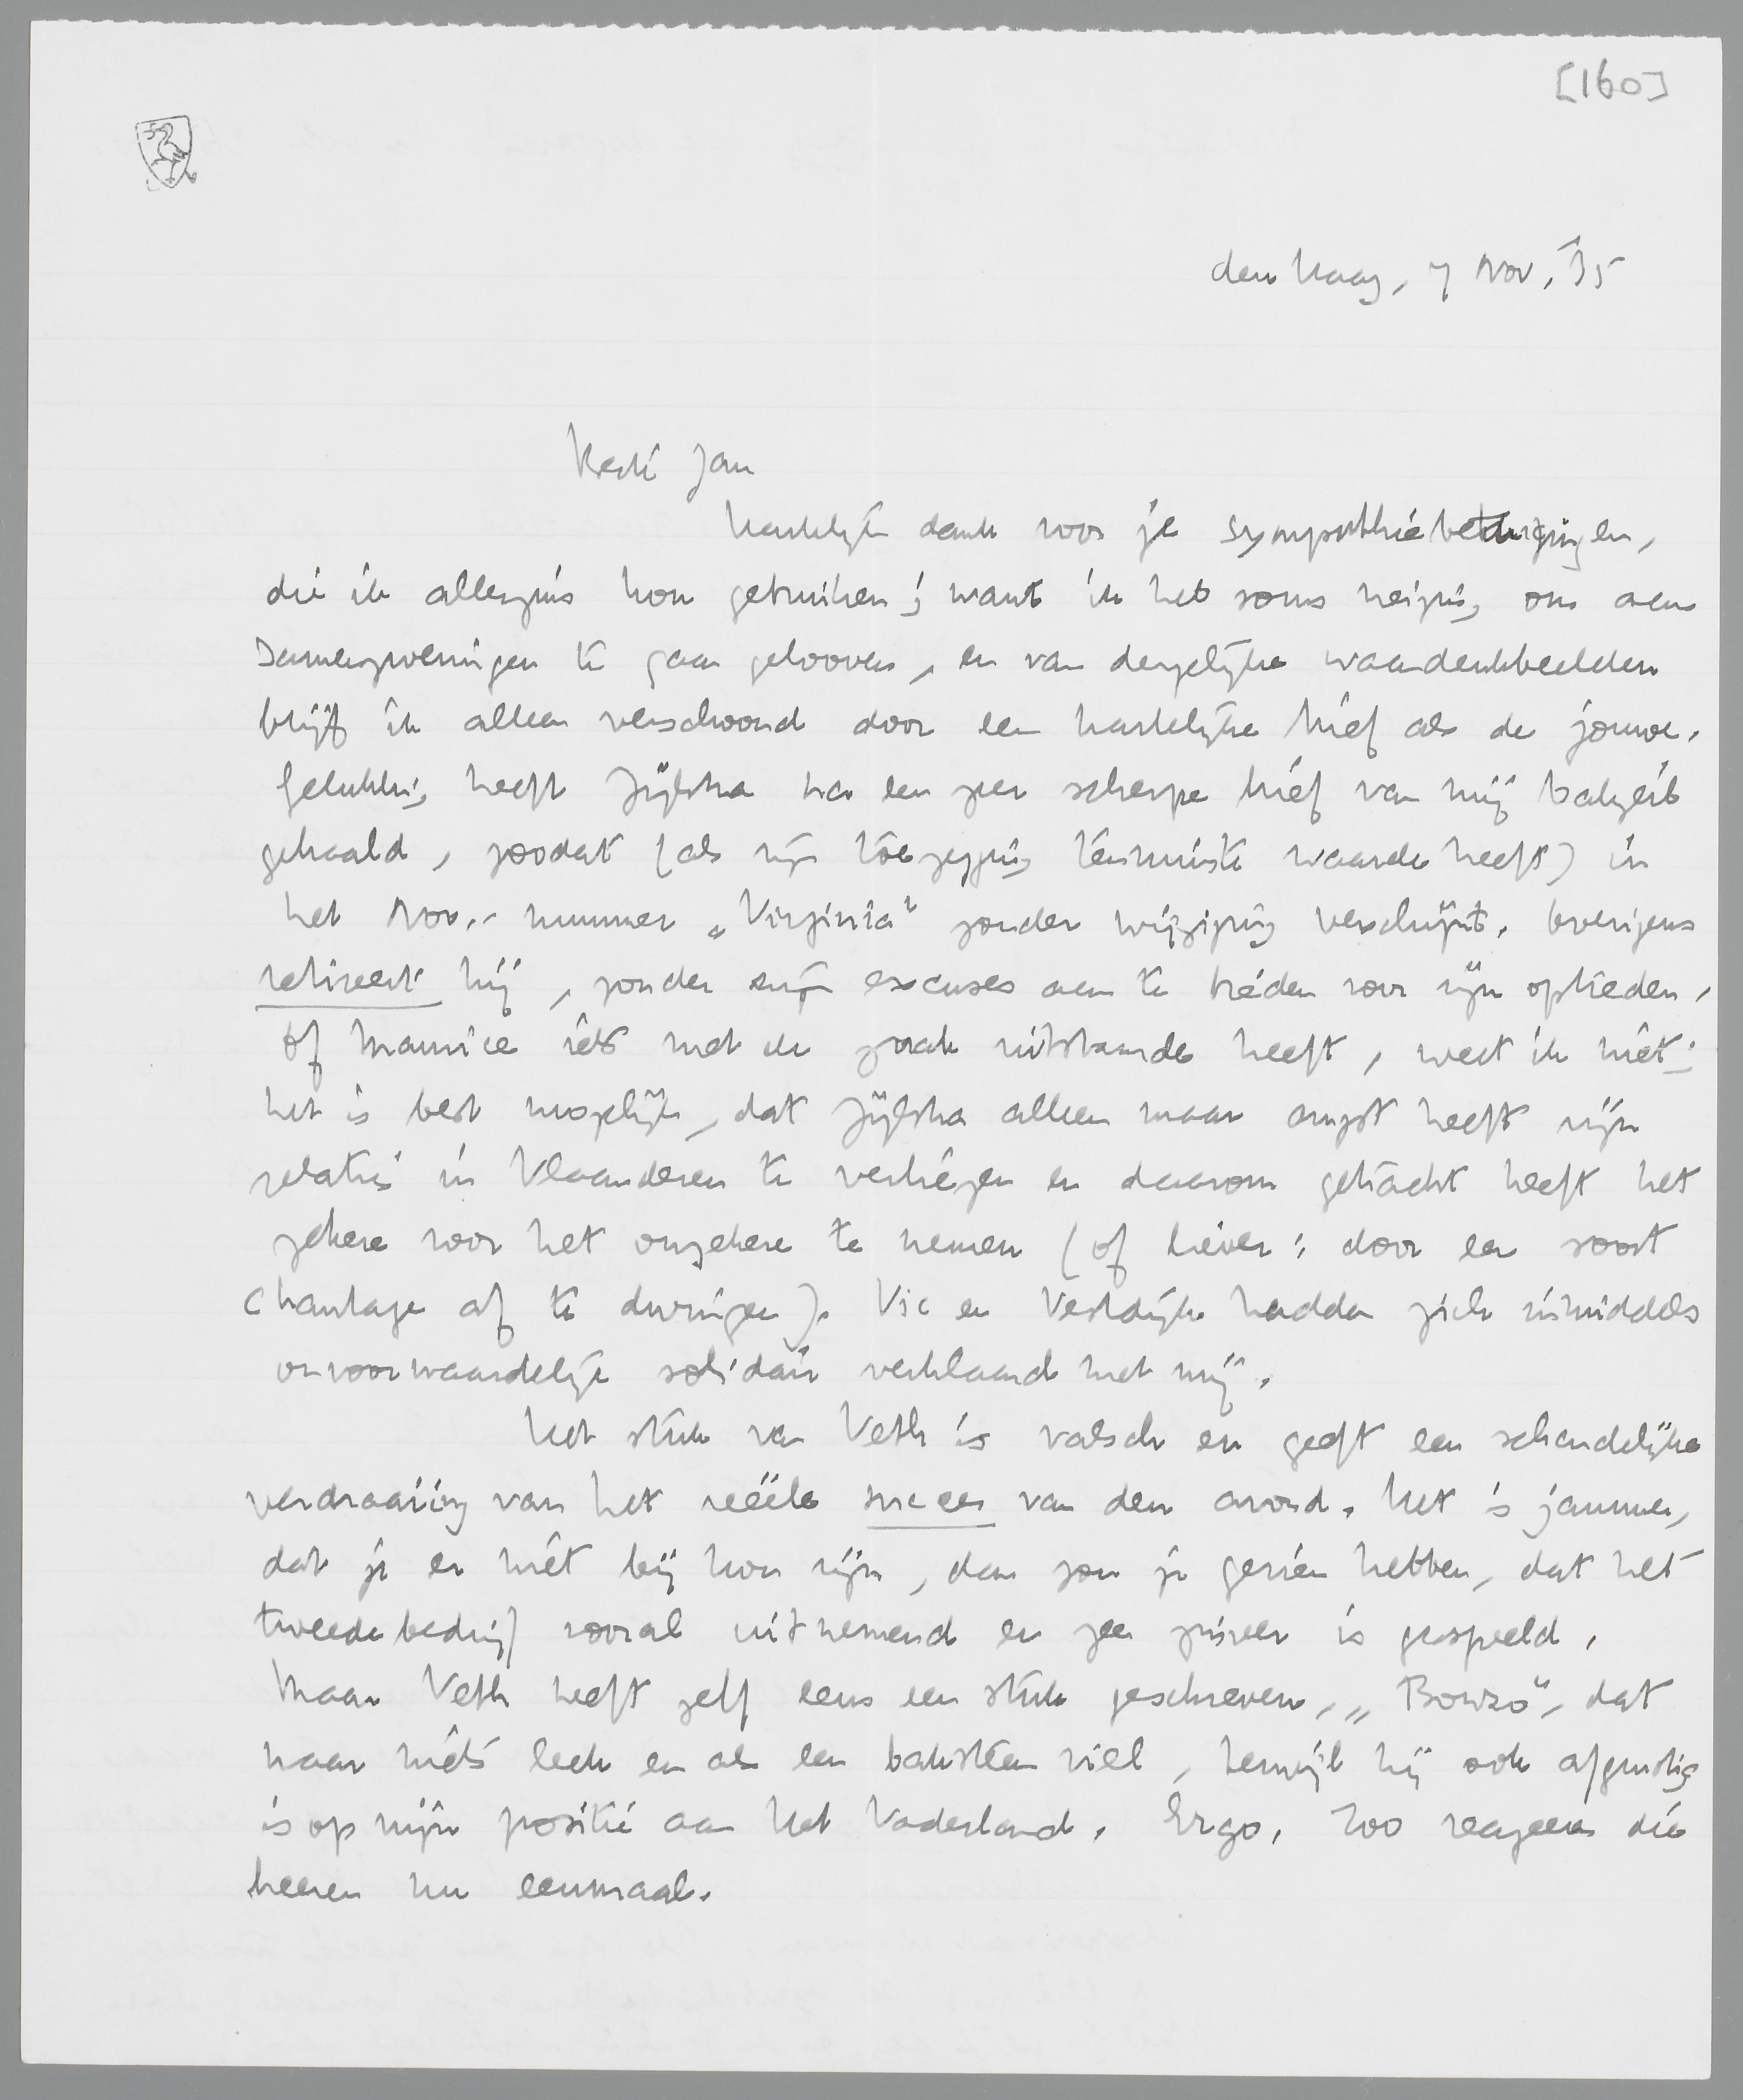 [160]
den Haag, 7 Nov. '35
Beste Jan
Hartelijk dank voor je sympathiebetuigingen,
die ik allerzins kon gebruiken; want ik heb soms neiging om aan
samenzweringen te gaan gelooven, en van dergelijke waandenkbeelden
blijf ik alleen verschoond door een hartelijke brief als de jouwe.
Gelukkig heeft Zijlstra na een zeer scherpe brief van mij bakzeil
gehaald, zoodat (als zijn toezegging tenminste waarde heeft) in
het Nov.-nummer „Virginia" zonder wijziging verschijnt. Overigens
retireert hij, zonder zijn excuses aan te bieden voor zijn optreden.
Of Maurice iets met de zaak uitstaande heeft, weet ik niet;
het is best mogelijk, dat Zijlstra alleen maar angst heeft zijn
relaties in Vlaanderen te verliezen en daarom getracht heeft het
zekere voor het onzekere te nemen (of liever: door een soort
chantage af te dwingen). Vic en Vestdijk hadden zich inmiddels
onvoorwaardelijk solidair verklaard met mij.
Het stuk van Veth is valsch en geeft een schandelijke
verdraaiing van het reëele succes van den avond. Het is jammer,
dat je er niet bij kon zijn, dan zou je gezien hebben, dat het
tweede bedrijf vooral uitnemend en zeer zuiver is gespeeld.
Maar Veth heeft zelf eens een stuk geschreven, „Bonzo", dat
naar niets leek en als een baksteen viel, terwijl hij ook afgunstig
is op mijn positie aan Het Vaderland. Ergo. Zoo reageeren die
heeren nu eenmaal.